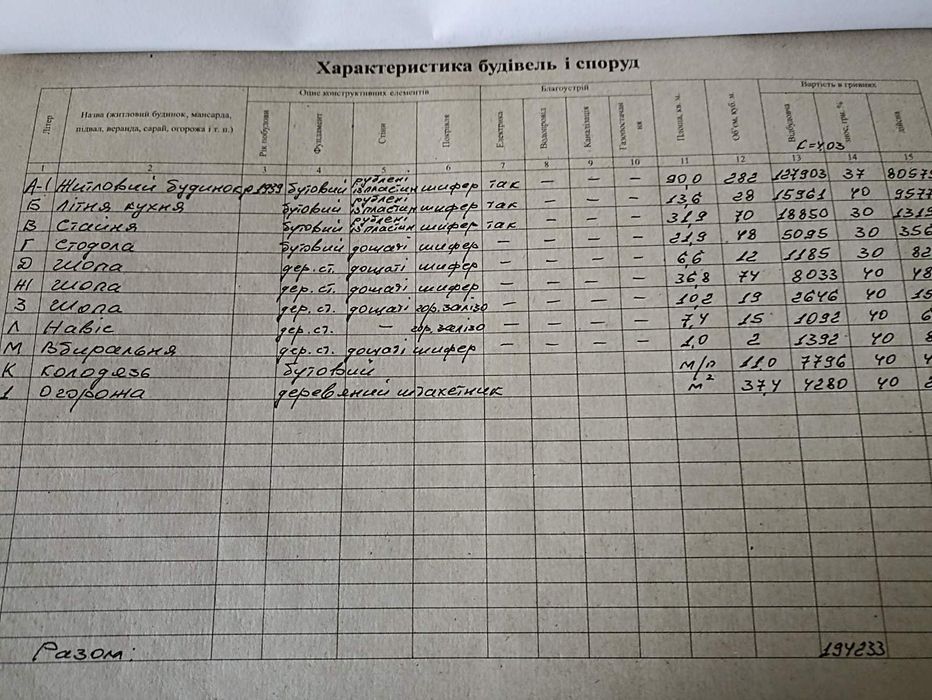 Характеристика будівель і споруд
Літер Назва (житловий будинок, мансарда, підвал, веранда, сарай, огорожа і т. п.) Рік побудови Опис конструктивних елементів Фундамент Стіни Покрівля Благоустрій Електрика Водопровід Каналізація Газопостачання Площа, кв. м. Об'єм, куб. м. Вартість в гривнях Відбудовча знос, грн. % дійсна
К=4,03
1 2 3 4 5 6 7 8 9 10 11 12 13 14 15
А-1 Житловий будинок 1939 бутовий рублені із пластин шифер так — — — 90,0 282 127903 37 80579
Б Літня кухня бутовий рублені із пластин шифер так — — — 13,6 28 15961 40 9577
В Стайня бутовий рублені із пластин шифер так — — — 31,9 70 18850 30 1319
Г Стодола бутовий дощаті шифер — — — — 21,9 48 5095 30 356
Д Шопа дер.ст. дощаті шифер — — — — 6,6 12 1185 30 82
Ж Шопа дер.ст. дощаті шифер — — — — 36,8 74 8033 40 48
З Шопа дер.ст. дощаті гор.залізо — — — — 10,2 19 2646 40 15
Л Навіс дер.ст. — гор.залізо — — — — 7,4 15 1092 40 6
М Вбиральня дер.ст. дощаті шифер — — — — 1,0 2 1392 40 8
К Колодязь бутовий м/п 11.0 7796 40 4
1 Огорожа деревяний штахетник м² 37,4 4280 40 2
Разом: 194233